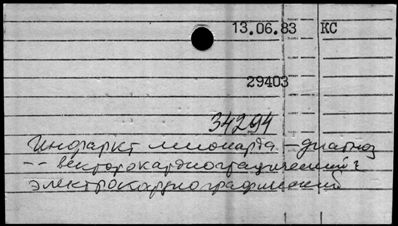 13.06.83 КС
29403
34294
Инфаркт миокарда - диагноз
-- векторкардиографический и
электрокардиографический